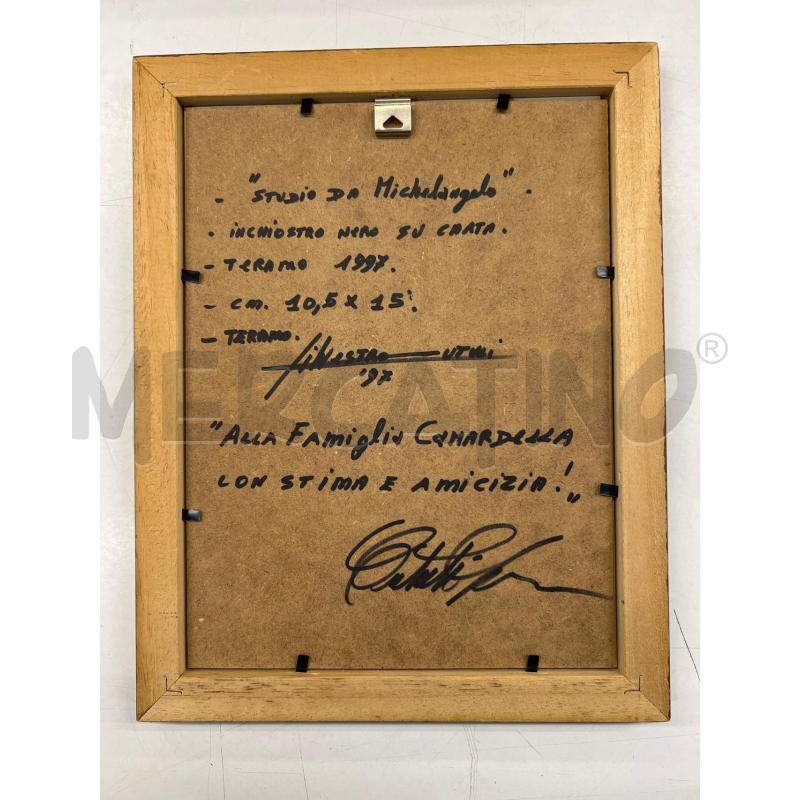 - "STUDIO DA Michelangelo".
- INCHIOSTRO NERO SU CARTA.
- TERAMO 1997.
- cm. 10,5 X 15.
- TERAMO.
'97
MERCATINO®
"ALLA FAMIGLIA
CON STIMA E AMICIZIA!"